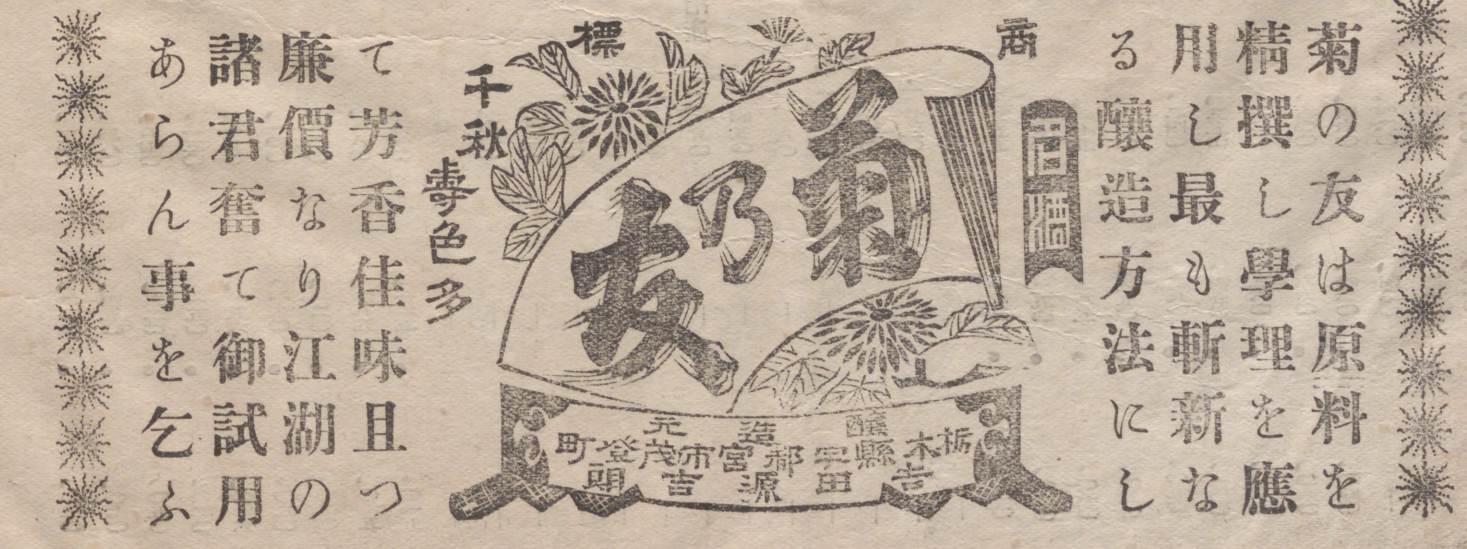 菊の友は原料を
精撰し學理を應
用し最も斬新な
る釀造方法にし
商標
菊乃友
千秋
壽色多
釀造元
栃木縣宇都宮市茂登町
吉田源吉
て芳香佳味且つ
廉價なり江湖の
諸君奮て御試用
あらん事を乞ふ